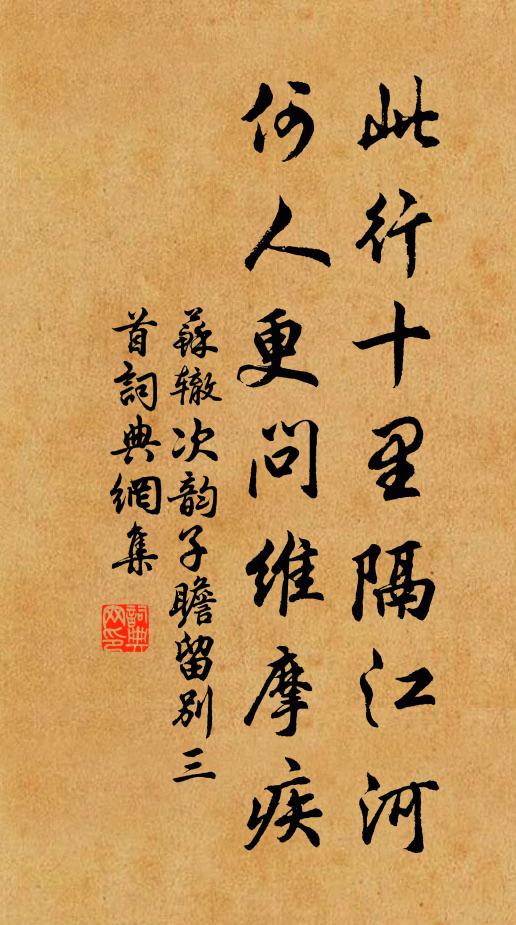 此行十里隔江河
何人更问维摩疾
蘇辙次韵子瞻留别三
首詞典網集
詞典网印